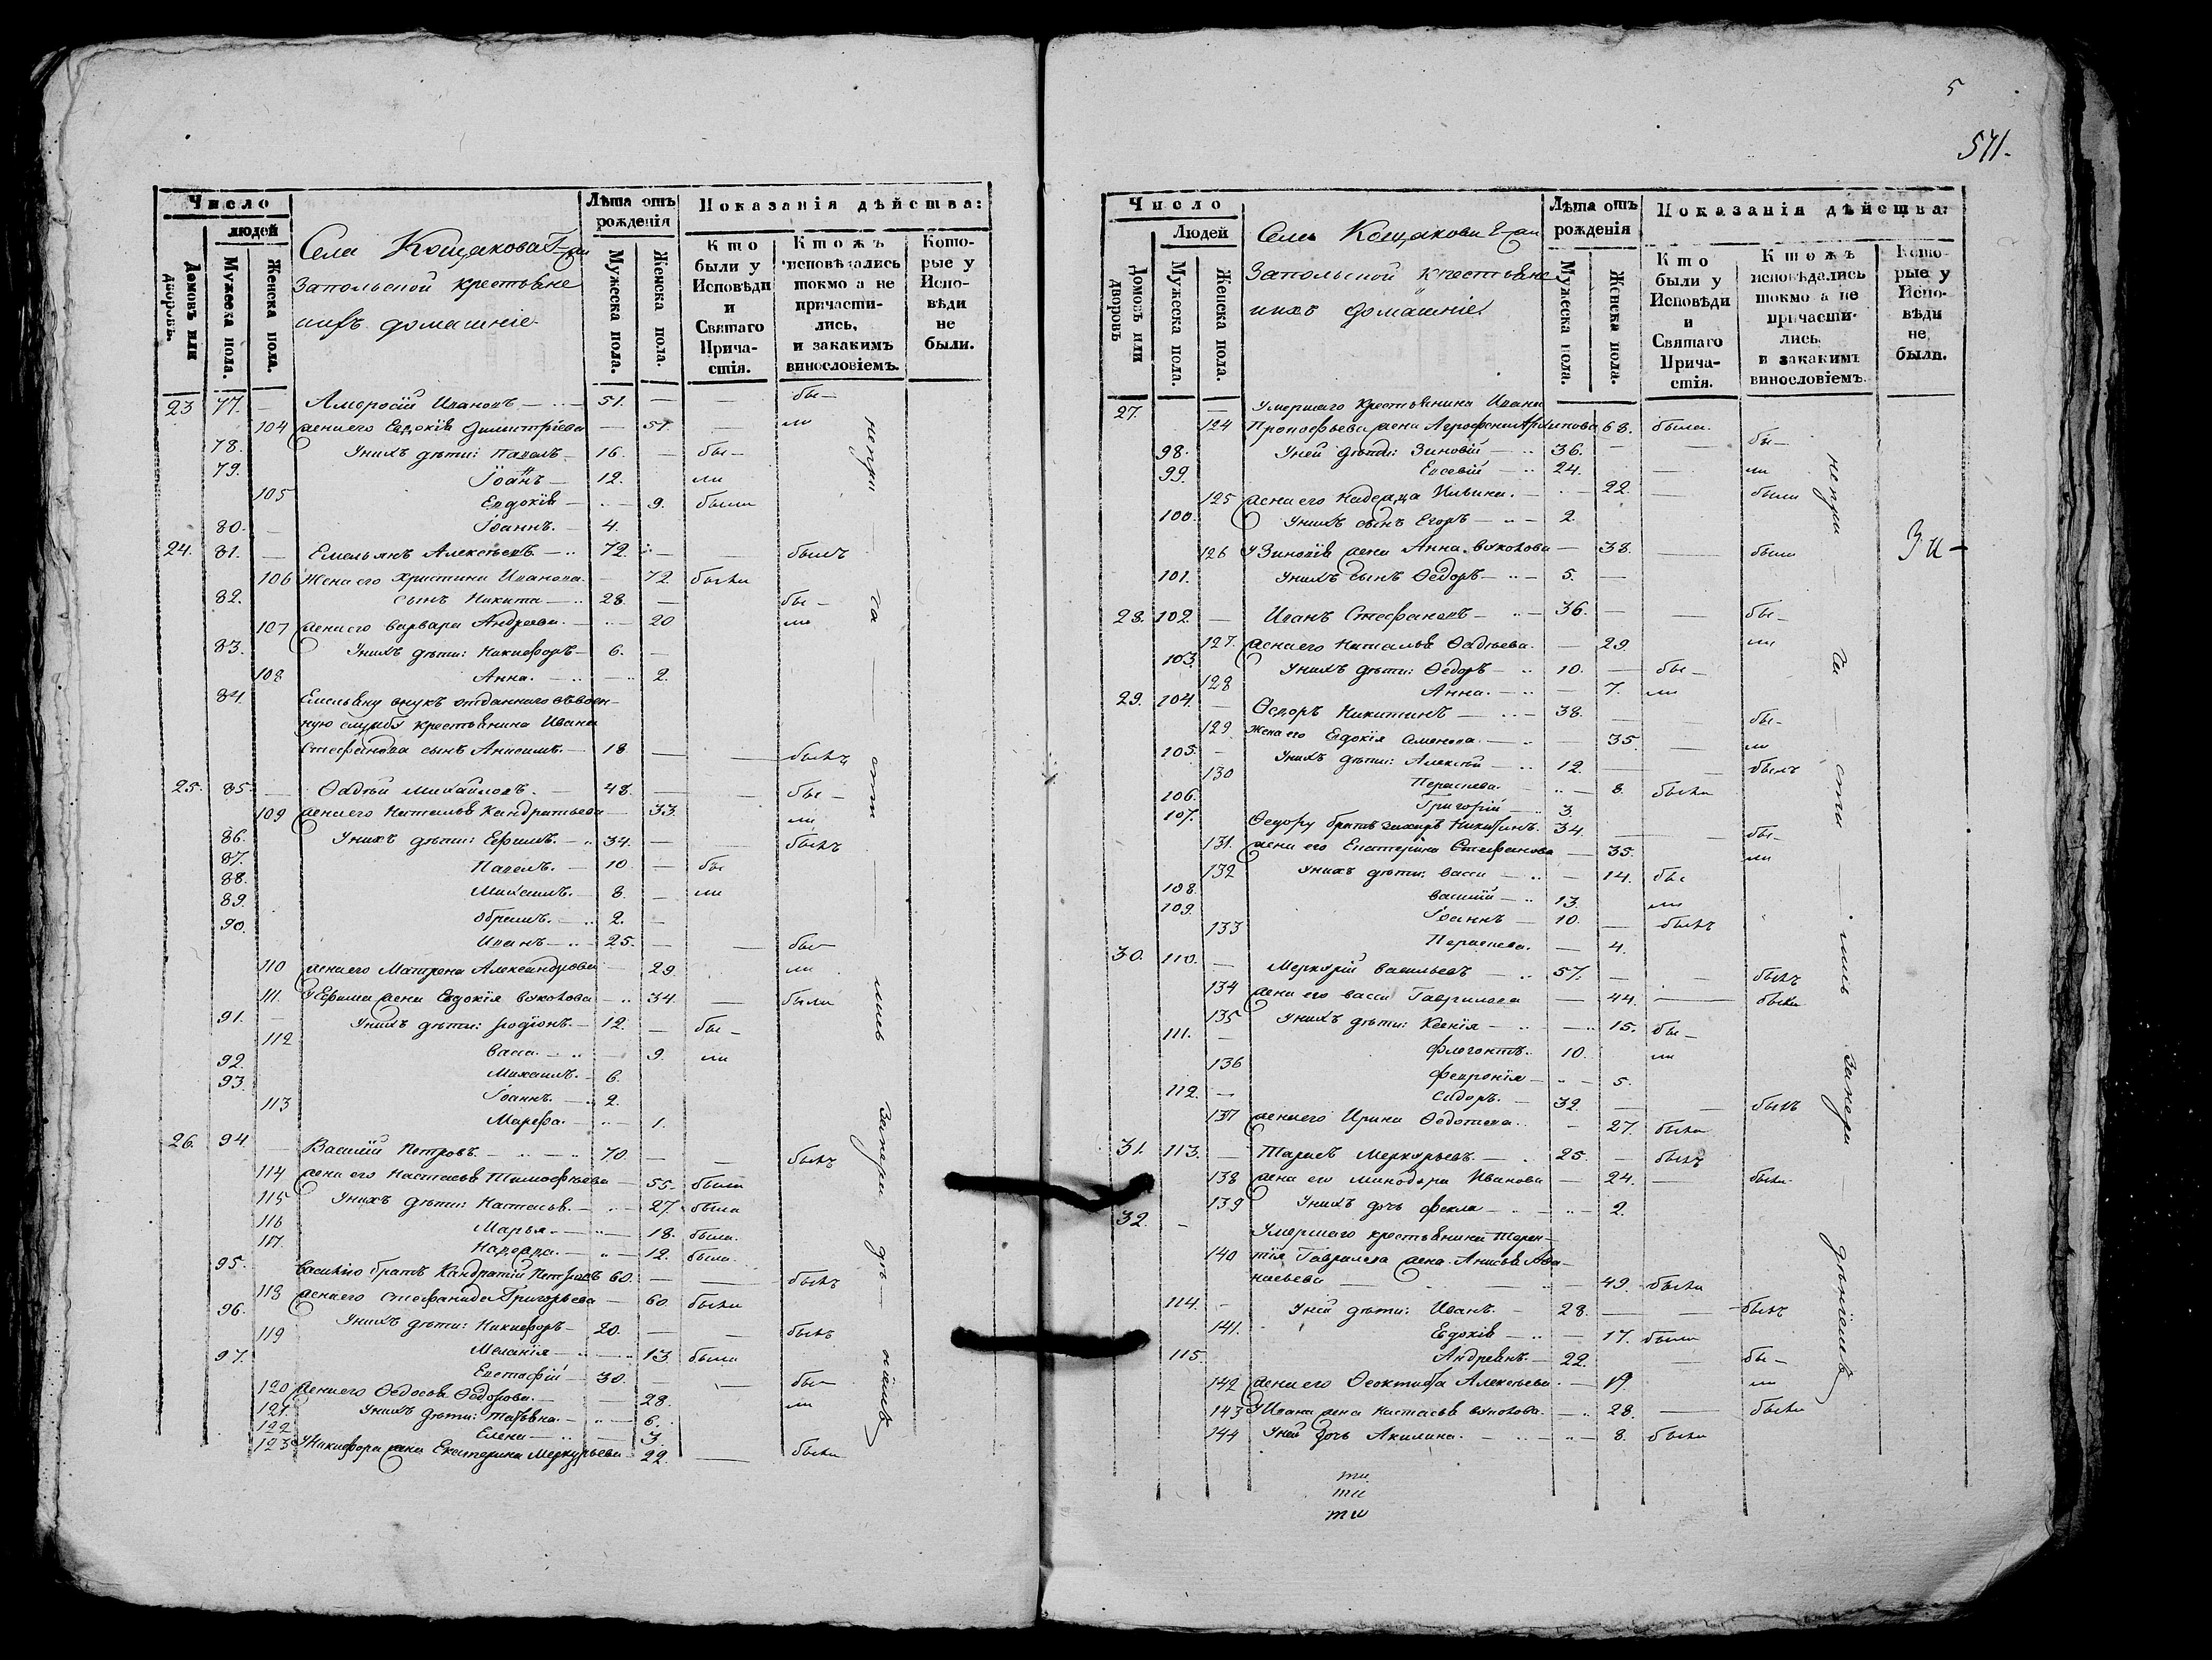 Число
людей
Домовъ или дворовъ.
Мужеска пола.
Женска пола.
Села Кощакова Г-жи
Запольской крестьяне
ихъ домашніе
Лѣта отъ рожденія
Мужеска пола.
Женска пола.
Показанія дѣйства:
Кто были у Исповѣди и Святаго Причастія.
Ктожъ исповѣдались токмо а не причастились, и закакимъ винословіемъ.
Которые у Исповѣди не были.
23 77. — Амвросій Ивановъ — 51. — — бы-
104 жена его Евдокія Димитріева — 51. — ли
78. Унихъ дѣти: Павелъ 16. — бы-
79. Іоанъ — 12. ли
105 Евдокія — 9. были
80. — Іоаннъ. — 4.
24. 81. — Емельянъ Алексѣевъ — 72. — — былъ
106 Жена его Христина Иванова. — 72 была
82. сынъ Никита — 28. — бы-
107 жена его Варвара Андреева. — 20 ли
83. Унихъ дѣти: Никифоръ — 6. —
108 Анна. — 2.
84. Емельяну внукъ отданнаго въвоен-
ную службу крестьянина Ивана
Стефанова сынъ Анисимъ. — 18 — — былъ
25. 85. — Фадѣй Михайловъ. — 48. — — бы-
109 жена его Наталья Кандратьева — 33. ли
86. Унихъ дѣти: Ефимъ. — 34. — былъ
87. Павелъ. — 10. — бы
88. Михаилъ. — 8. — ли
89. — 2. —
90. Иванъ — 25. — — бы-
110 жена его Матрена Александрова — 29. ли
111. У Ефима жена Евдокія Вукохова — 34. — была
91. — Унихъ дѣти: Родіонъ. — 12. — бы-
112 Васса. — 9. ли
92. Михаилъ. — 6.
93. Іоаннъ. — 2.
113 Марѳа. — 1.
26. 94. — Василій Петровъ — 70. — — былъ
114 жена его Настасья Тимофѣева — 55. была
115 Унихъ дѣти: Настасья. — 27. была
116 Марья. — 18. была.
117. Надежда. — 12. была
95. Василію братъ Кандратій Петровъ 60. — — былъ
118 жена его Стефанида Григорьева — 60. была
96. Унихъ дѣти: Никифоръ — 20. — — былъ
119 Меланія — 13. была
97. Евстафій — 30. — — бы-
120 жена его Ѳедосья Ѳедорова. — 28. ли
121. Унихъ дѣти: Татьяна. — 6.
122 Елена — 3.
123 У Никифора жена Екатерина Меркурьева 22. — была
непри — ча — сти — лись занера дѣ — ніемъ
5
571.
Число
Людей
Домовъ или дворовъ
Мужеска пола.
Женска пола.
Села Кощакова Г-жи
Запольской крестьяне
ихъ домашніе
Лѣта отъ рожденія
Мужеска пола.
Женска пола.
Показанія дѣйства:
Кто были у Исповѣди и Святаго Причастія.
Ктожъ исповѣдались токмо а не причастились, и закакимъ винословіемъ.
Которые у Исповѣди не были.
27. — Умершаго крестьянина Ивана
124 Прокофьева жена Агрофена Архипова 68. была.
98. Уней дѣти: Зиновій — 36. — — бы-
99. Евсевій — 24. — ли
125 жена его Надежда Ильина. — 22. — была
100. Унихъ сынъ Егоръ — 2.
126 У Зиновія жена Анна Вукохова — 38. — была
101. Унихъ сынъ Ѳедоръ — 5. —
28. 102 — Иванъ Стефановъ — 36. — — бы-
127. жена его Наталья Фадѣева. — 29. ли
103. Унихъ дѣти: Ѳедоръ — 10. — бы-
128 Анна. — 7. ли
29. 104. — Ѳедоръ Никитинъ — 38. — — бы-
129 Жена его Евдокія Семенова. — 35. — ли
105. — Унихъ дѣти: Алексѣй — 12. — — былъ
130 Параскева. — 8. была
106. Григорій — 3.
107. Ѳедору братъ Захаръ Никитинъ. 34. — — бы-
131. жена его Екатерина Стефанова — 35. ли
132 Унихъ дѣти: Васса — 14. бы-
108. Василій — 13. ли
109. Іоаннъ — 10. — былъ
133 Параскева. — 4.
30. 110. — Меркурій Васильевъ — 57. — — былъ
134 жена его Васса Гаврилова — 44. — была
135 Унихъ дѣти: Ксенія — 15. бы-
111. — Флегонтъ. 10. ли
136 Февронія — 5.
112. — Сидоръ. — 32. — — былъ
137 жена его Ирина Ѳедотова. — 27. была
31. 113. — Тарасъ Меркурьевъ. — 25. — былъ
138 жена его Минодора Иванова — 24. — была
139 Унихъ дочь Фекла — 2.
32. — Умершаго крестьянина Терен-
140 тія Гаврилова жена Анисья Афа-
насьева — 49. была
114. — Уней дѣти: Иванъ. — 28. — — былъ
141. Евдокія — 17. была
115. Андреянъ. — 22. — бы-
142 жена его Ѳеоктиста Алексѣева. — 19. ли
143 У Ивана жена Настасья Вукохова. — 28. — была
144 Уней дочь Акилина. — 8. была
непри — ча — сти — лись занера — дѣніемъ